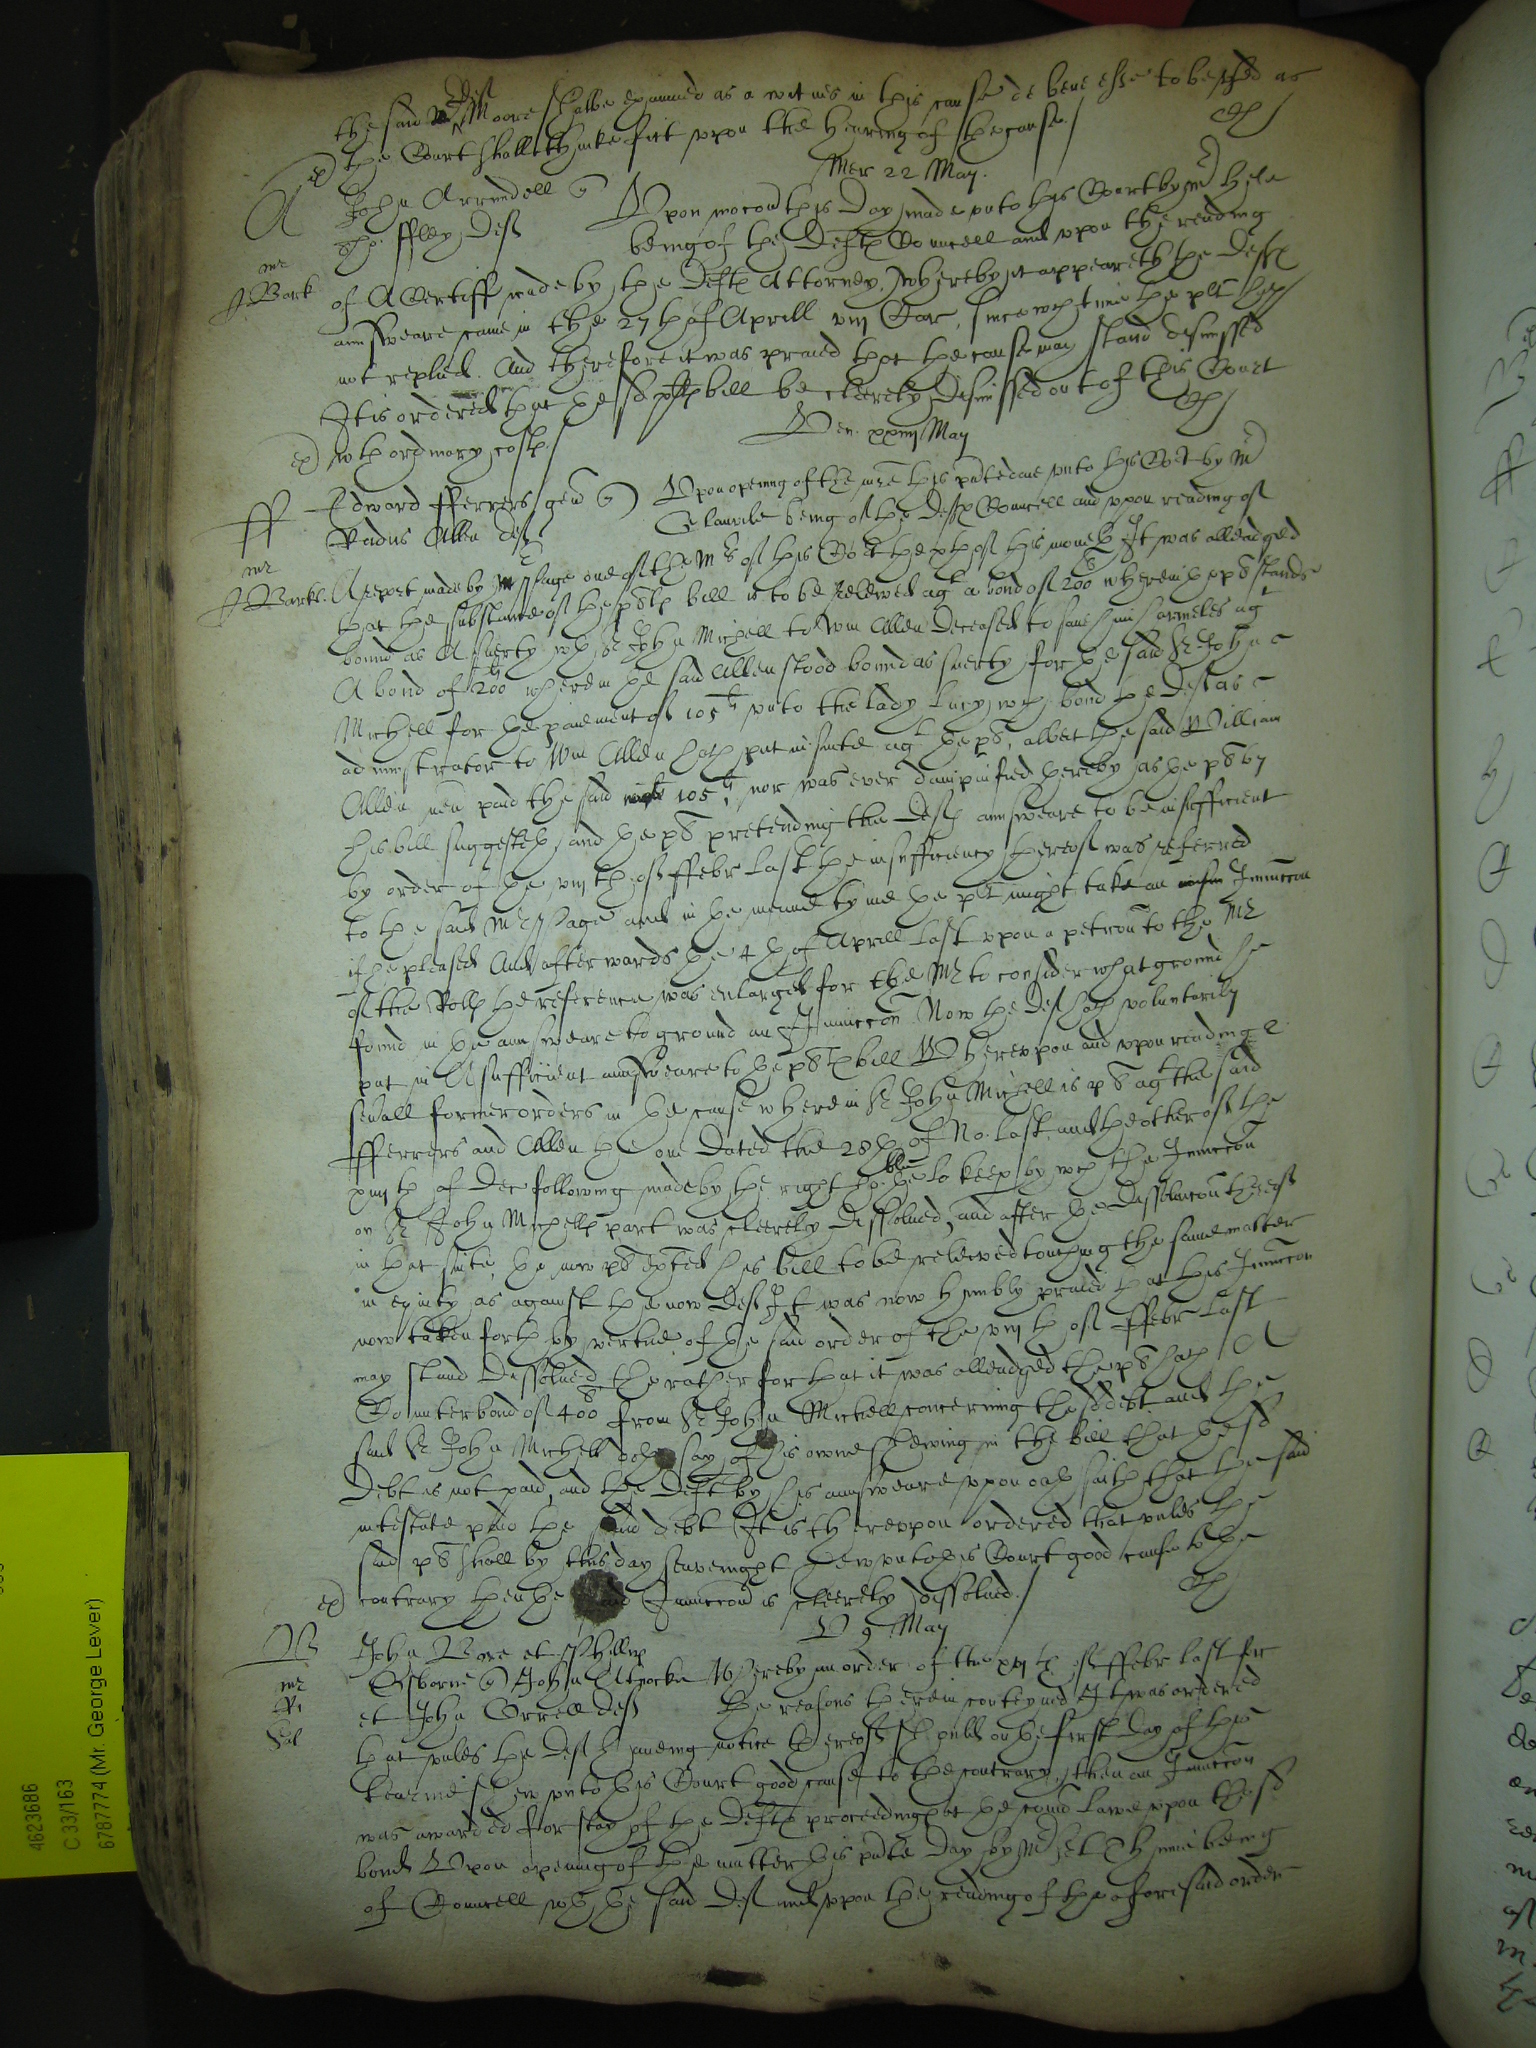 the said Deft Moore shalbe examined as a witnes in this cause de bene esse to be used as
the Court shall thinke fitt upon the hearing of the cause
Mer 22 May
A John Arrundell
ffley Deft Upon mocon this Day made unto this Court by Mr
being of the Defts Councell and upon the reading
of A Certiff made by the Defts Attorney, whereby it appeareth the Defts
answeare came in the 27th of Aprill viij Car, since wch time the plt hath
not replied. And therefore it was praied that the cause may stand dismissed
It is ordered that the sd plts bill be cleerely dismissed out of this Court
wth ordinary costs
Ven. xxiiij May
ff Edward fferrers gen Upon opening of the mre this pnte daie unto this Cort by Mr
Radus Allen deft Glanvile being of the Defts Councell and upon reading of
A report made by Mr Page one of the Mrs of this Cort the xth of this moneth It was alleadged
that the substance of the plts bill is to be releived agt a bond of 200li wherein the plt stands
bound as A suerty wth Sr John Michell to Wm Allen Deceased to save him harmeles agt
A bond of 200li wherein the said Allen stood bound as suerty for the said Sr John
Michell for the paiement of 105li unto the Lady Lucy, wch bond the Deft as
administrator to Wm Allen hath put in suite agt the plt, albeit the said William
Allen nev paid the said 105li, nor was ever dampnified thereby as the plt by
his bill suggesteth, and the plt pretending the Defts answeare to be insufficient
by order of the viijth of ffebr last the insufficiency thereof was referred
to the said Mr Page and in the meane tyme the plt might take an Iniunccon
if he pleased And afterwards the 4th of Aprill last upon a peticon to the Mr
of the Rolls the reference was enlarged for the Mr to consider what ground he
found in the answeare to ground an Iniunccon Now the Deft hath voluntarily
put in A sufficient answeare to the plts bill Whereupon and upon reading
sevall former orders in the cause wherein Sr John Michell is plt agt the said
fferrers and Allen the one Dated the 28th of No. last and the other of the
xiijth of Dec following made by the right ho:ble the Lo keep by wch the Iniunccon
on Sr John Michells part was cleerely dissolved, and after the dissolucon thereof
in that suite, the now plt exhited his bill to be releived touching the same matter
in equity as against the now Deft It was now humbly praied that this Iniunccon
now taken forth by vertue of the said order of the viijth of ffebr last
may stand dissolved the rather for that it was alleadged the plt hath A
Counterbond of 400li from Sr John Michell concerning the sd debt and the
said Sr John Michell doth say of his owne shewing in the bill that the sd
Debt is not paid, and the Deft by his answeare upon oath saith that the said
intestate paid the said debt It is thereupon ordered that unles the
said plt shall by this day seavenight shew unto this Court good cause to the
contrary then the said Iniunccon is cleerely dissolved.
May
John Bore et Phillip
Osborne John Whereby an order of the xvjth of ffebr last for
et John Orrell deft the reasons therein conteyned It was ordered
that unles the Deft haveing notice thereof should on the first Day of this
tearme shew unto this Court good cause to the contrary, then an Iniunccon
was awarded for stay of the Defts proceedings at the comon Lawe upon these
bonds Upon opening of the matter this pnte Day by Mr being
of Councell wth the said Deft and upon the reading of the aforesaid order
4623686
C 33/163
6787774 (Mr. George Lever)